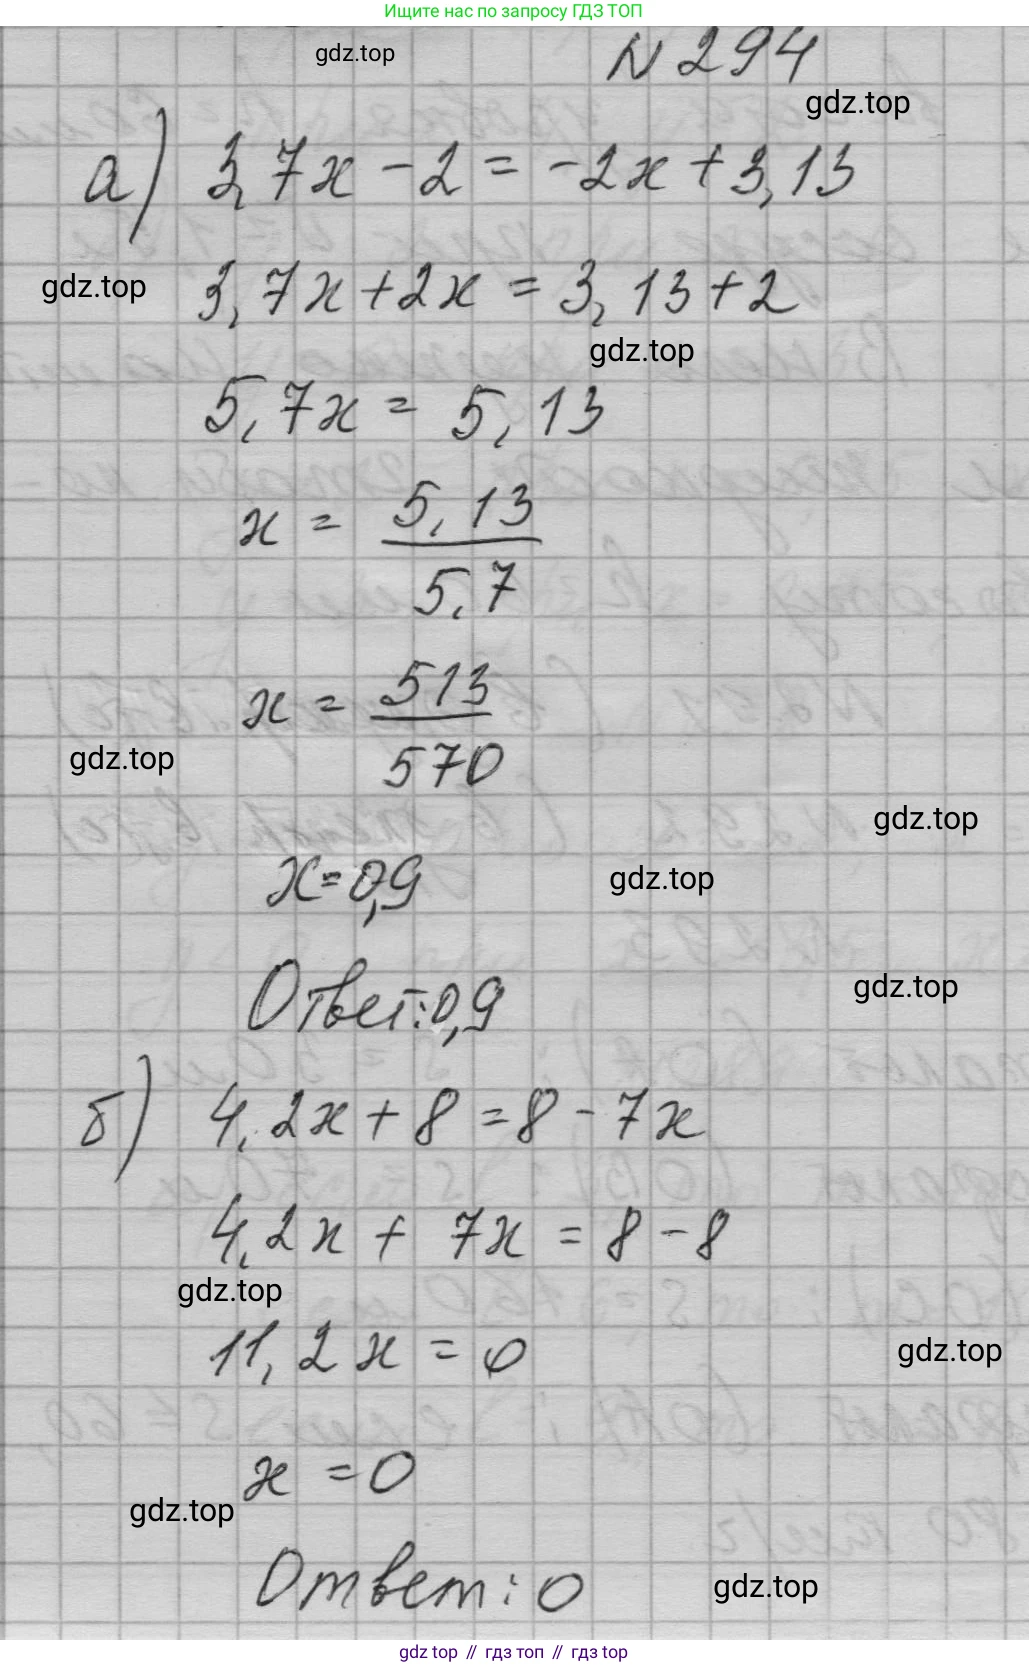 Ищите нас по запросу ГДЗ ТОП
gdz.top
N 294
gdz.top
а) 3,7x - 2 = -2x + 3,13
gdz.top
3,7x + 2x = 3,13 + 2
gdz.top
5,7x = 5,13
x = 5,13 / 5,7
x = 513 / 570
gdz.top
gdz.top
x = 0,9
gdz.top
Ответ: 0,9
gdz.top
б) 4,2x + 8 = 8 - 7x
4,2x + 7x = 8 - 8
gdz.top
11,2x = 0
gdz.top
x = 0
gdz.top
Ответ: 0
gdz.top
gdz top // гдз топ // gdz top